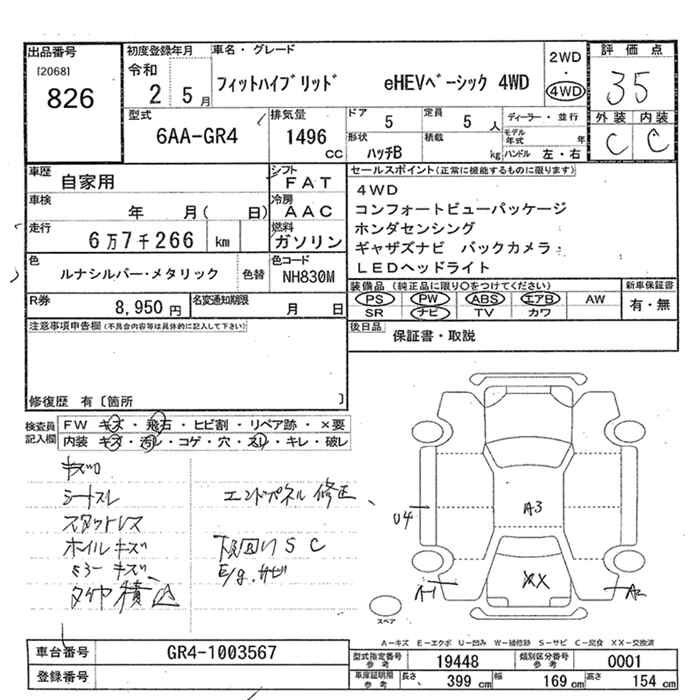 出品番号
[2068]
826
初度登録年月
令和
2 5月
車名・グレード
フィットハイブリッド eHEVベーシック 4WD
2WD
・
4WD
評価点
35
外装 内装
C C
型式
6AA-GR4
排気量
1496
CC
ドア
5
定員
5 人
形状
ハッチB
積載
kg
ディーラー・並行
モデル年式 年
ハンドル 左・右
車歴
自家用
シフト
FAT
車検
年 月( 日)
冷房
AAC
走行
6万7千266 km
燃料
ガソリン
色
ルナシルバー・メタリック
色替
色コード
NH830M
R券
8,950円
名変通知期限
月 日
セールスポイント(正常に機能するものに限ります)
4WD
コンフォートビューパッケージ
ホンダセンシング
ギャザズナビ バックカメラ
LEDヘッドライト
装備品 (純正品に限り○をつけてください)
PS PW ABS エアB AW
SR ナビ TV カワ
新車保証書
有・無
後日品
保証書・取説
注意事項申告欄(不具合内容等は具体的に記入して下さい)
修復歴 有〔箇所 〕
検査員
記入欄
FW キズ・飛石・ヒビ割・リペア跡・×要
内装 キズ・汚レ・コゲ・穴・スレ・キレ・破レ
キズロ
シートスレ
スタットレス
ホイルキズ
ミラーキズ、
タイヤ積△
エンドパネル修正、
下回りSC
E/g.サビ
U4
A3
A1
XX
A2
スペア
A-キズ E-エクボ U-凹み W-補修跡 S-サビ C-腐食 XX-交換済
車台番号
GR4-1003567
登録番号
型式指定番号
参考
19448
類別区分番号
参考
0001
車庫証明用
参考
長さ 399 cm 幅 169 cm 高さ 154 cm